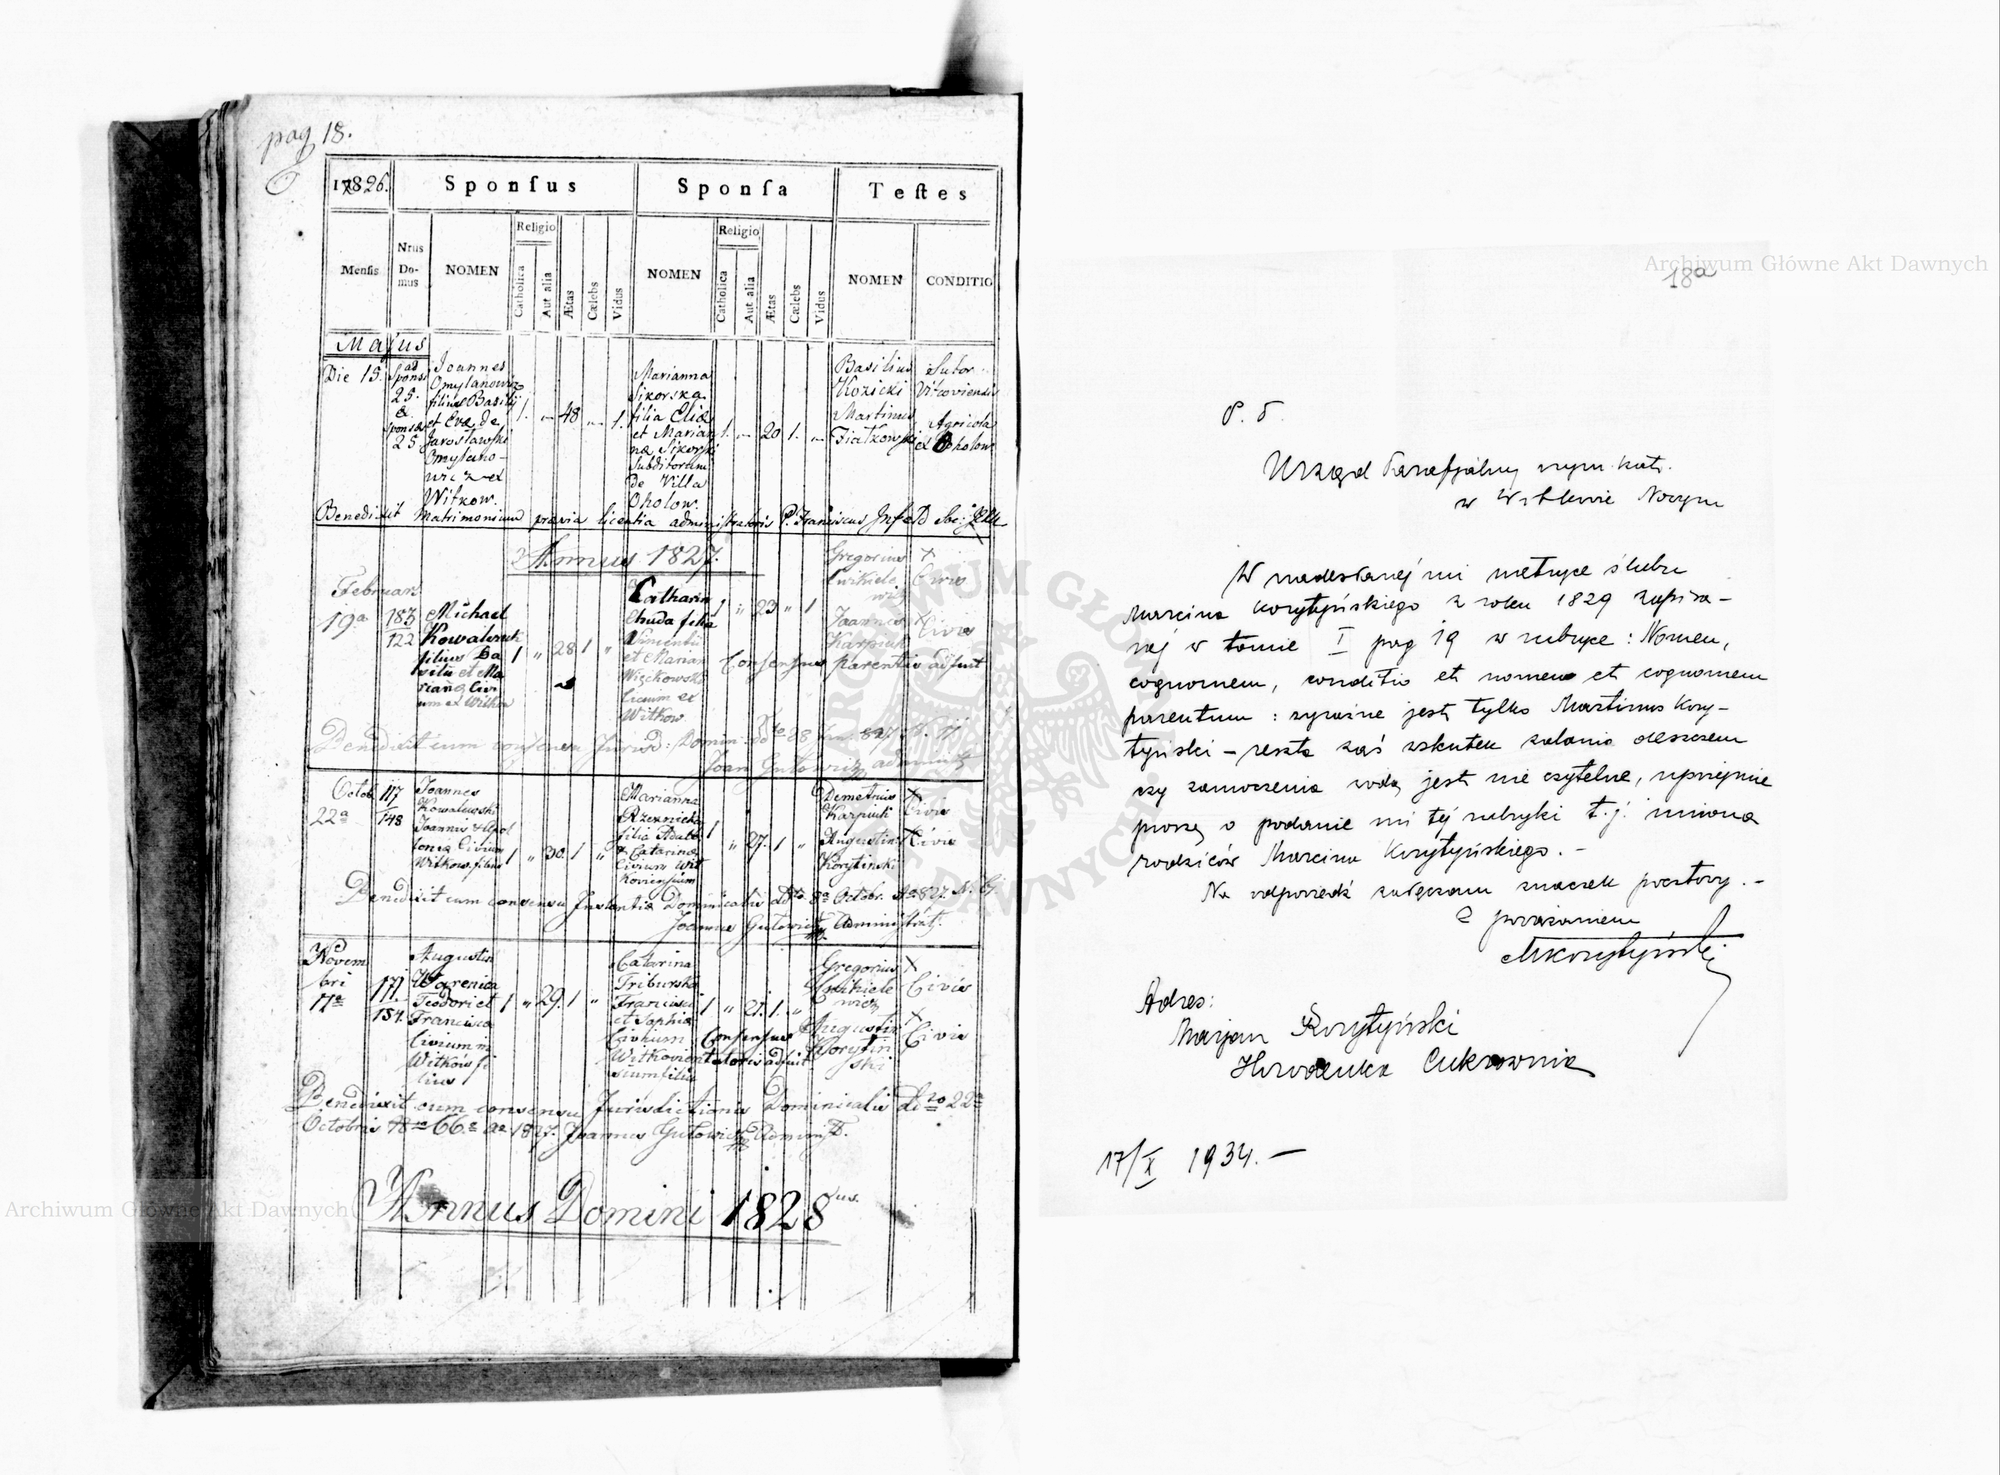 pag 18.
1826.
Sponſus
Sponſa
Teſtes
Menſis
Nrus Do-mus
NOMEN
Religio
Catholica
Aut alia
Ætas
Cælebs
Vidus
NOMEN
Religio
Catholica
Aut alia
Ætas
Cælebs
Vidus
NOMEN
CONDITIO
Majus
Die 15.
ad Sponsi
25.
&
Sponsæ
25
Joannes
Omylanowicz
filius Basilij
et Evæ de
Jarosławski
Omylano-
wicz ex
Witkow.
1.
48
1.
Marianna
Sikorska
filia Eliæ
et Marian
næ Sikorski
Subditorum
De Villa
Oholow.
1.
20
1.
Basilius
Kozicki
Martinus
Fiatkowski
Sutor
Vitcoviensis
Agricola
ex Oholow
Benedixit Matrimonium prævia licentia administratoris P. Franciscus
Annus 1827.
Februari
19a
183
122
Michael
Kowalczuk
filius Ba
silii et Ma
riañæ Civi
um ex Witkow
1
28
1
Catharin
Chuda filia
et Marian
Więckowski
Civium ex
Witkow
1
23
1
Gregorius
Cwikiele
wicz
Joannes
Karpiuk
Civis
Civis
Consensus parentis adfuit
Benedixit cum consensu Jurisd: Domin:
Joan Gutowicz administ
Octob
22a
117
148
Joannes
Kowalewski
Joannis & Apol
loniæ Civium
Witkow. filius
1
30
1
Marianna
Rzeznicka
filia
& Catarinæ
Civium Wit
koviensium
1
27.
1
Demetrius
Karpiuk
Augustin
Korytinski
Civis
Civis
Benedixit cum consensu Instantiæ Dominicalis dto 8a Octobr. Ao 827. N.
Joannes Gutowicz Administrat.
Novem
bri
17a
171
154.
Augustin
Warenica
Teodori et
Francisca
Civium in
Witkow fi
lius
1
29.
1
Catarina
Triburska
Francisci
et Sophiæ
Civium
Witkovien
sium filia
1
21.
1.
Consensus
tutoris adfuit
Gregorius
Cwikiele
wicz
Augustin
Korytin
ski
Civis
Civis
Benedixit cum consensu Jurisdictionis Dominicalis dto 22a
Octobris 66. ao 1827. Joannes Gutowicz Administ.
Annus Domini 1828
18a
P. T.
Urząd Parafjalny rzym. kat.
w Witkowie Nowym
W nadesłanej mi metryce ślubu
Marcina Korytyńskiego z roku 1829 zapisa-
nej w tomie I pag 19 w rubryce: Nomen,
cognomen, conditio et nomen et cognomen
parentum: wyraźne jest tylko Martinus Kory-
tyński – reszta zaś wskutek zalania deszczem
czy zamoczenia wodą jest nie czytelne, uprzejmie
proszę o podanie mi tej rubryki t.j. imiona
rodziców Marcina Korytyńskiego. –
Na odpowiedź załączam znaczek pocztowy. –
Z poważaniem
MKorytyński
Adres:
Marjan Korytyński
Horodenka Cukrownia
17/X 1934. –
Archiwum Główne Akt Dawnych
Archiwum Główne Akt Dawnych
ARCHIWUM GŁÓWNE AKT DAWNYCH